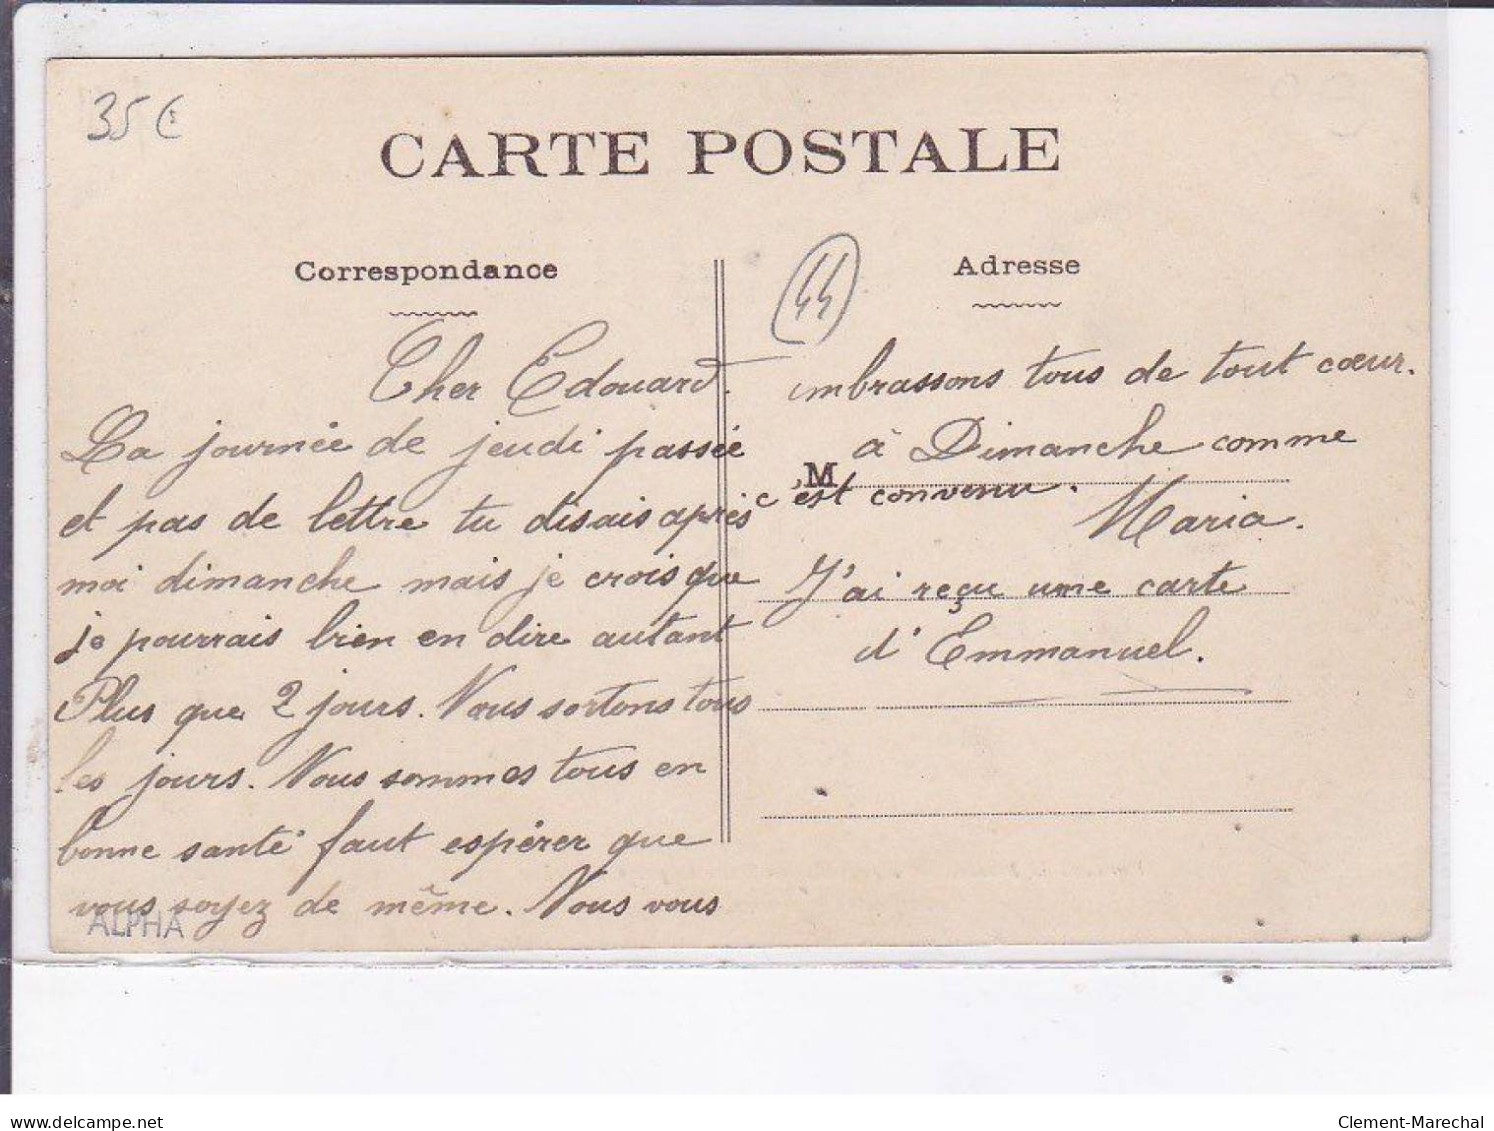 35 €
CARTE POSTALE
Correspondance
Cher Edouard.
La journée de jeudi passée
et pas de lettre tu disais après
moi dimanche mais je crois que
je pourrais bien en dire autant
Plus que 2 jours. Nous sortons tous
les jours. Nous sommes tous en
bonne santé faut espérer que
vous soyez de même. Nous vous
ALPHA
44
Adresse
embrassons tous de tout cœur.
à Dimanche comme
M
c'est convenu.
Maria.
J'ai reçu une carte
d'Emmanuel.
www.delcampe.net
Clement-Marechal